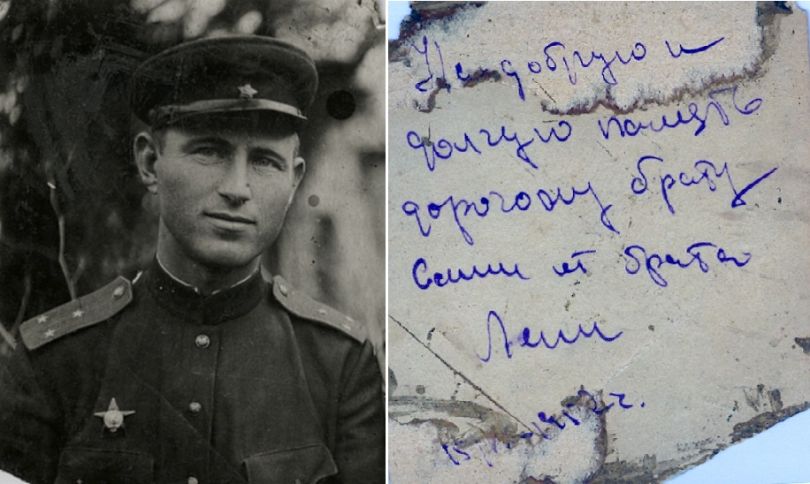 На добрую и
долгую память
дорогому брату
Саши от брата
Лени
1952 г.